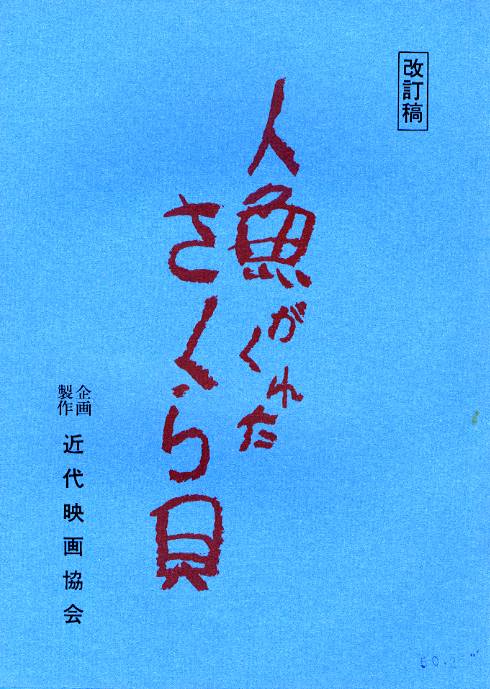 改訂稿
人魚がくれた
さくら貝
企画
製作
近代映画協会